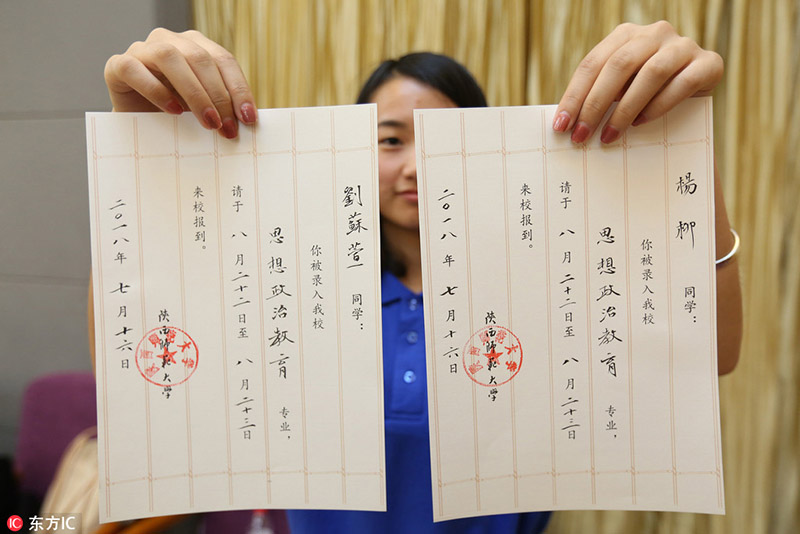 劉蘇萱 同学：
你被录入我校
思想政治教育 专业，
请于 八月二十二日至 八月二十三日
来校报到。
陕西师范大学
二〇一八年 七月十六日
楊柳 同学：
你被录入我校
思想政治教育 专业，
请于 八月二十二日至 八月二十三日
来校报到。
陕西师范大学
二〇一八年 七月十六日
东方IC